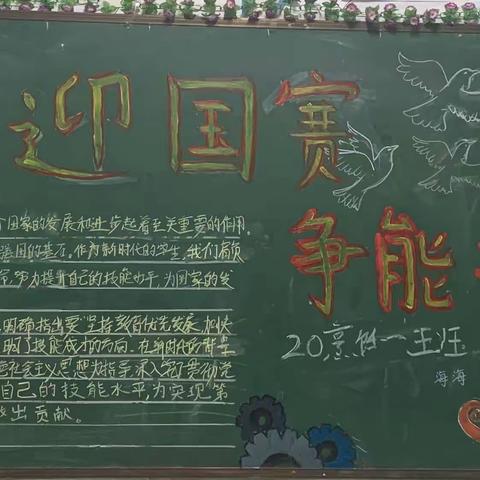 迎国赛
争能
个国家的发展和进步起着至关重要的作用。
强国的基石。作为新时代的学生,我们肩负
努力提升自己的技能水平,为国家的发
明确指出要"坚持教育优先发展、加快
明了技能成才的方向。在新时代的背景
社会主义思想为指导,深入学习劳动学
自己的技能水平,为实现"第
出贡献。
20烹饪一班
海海